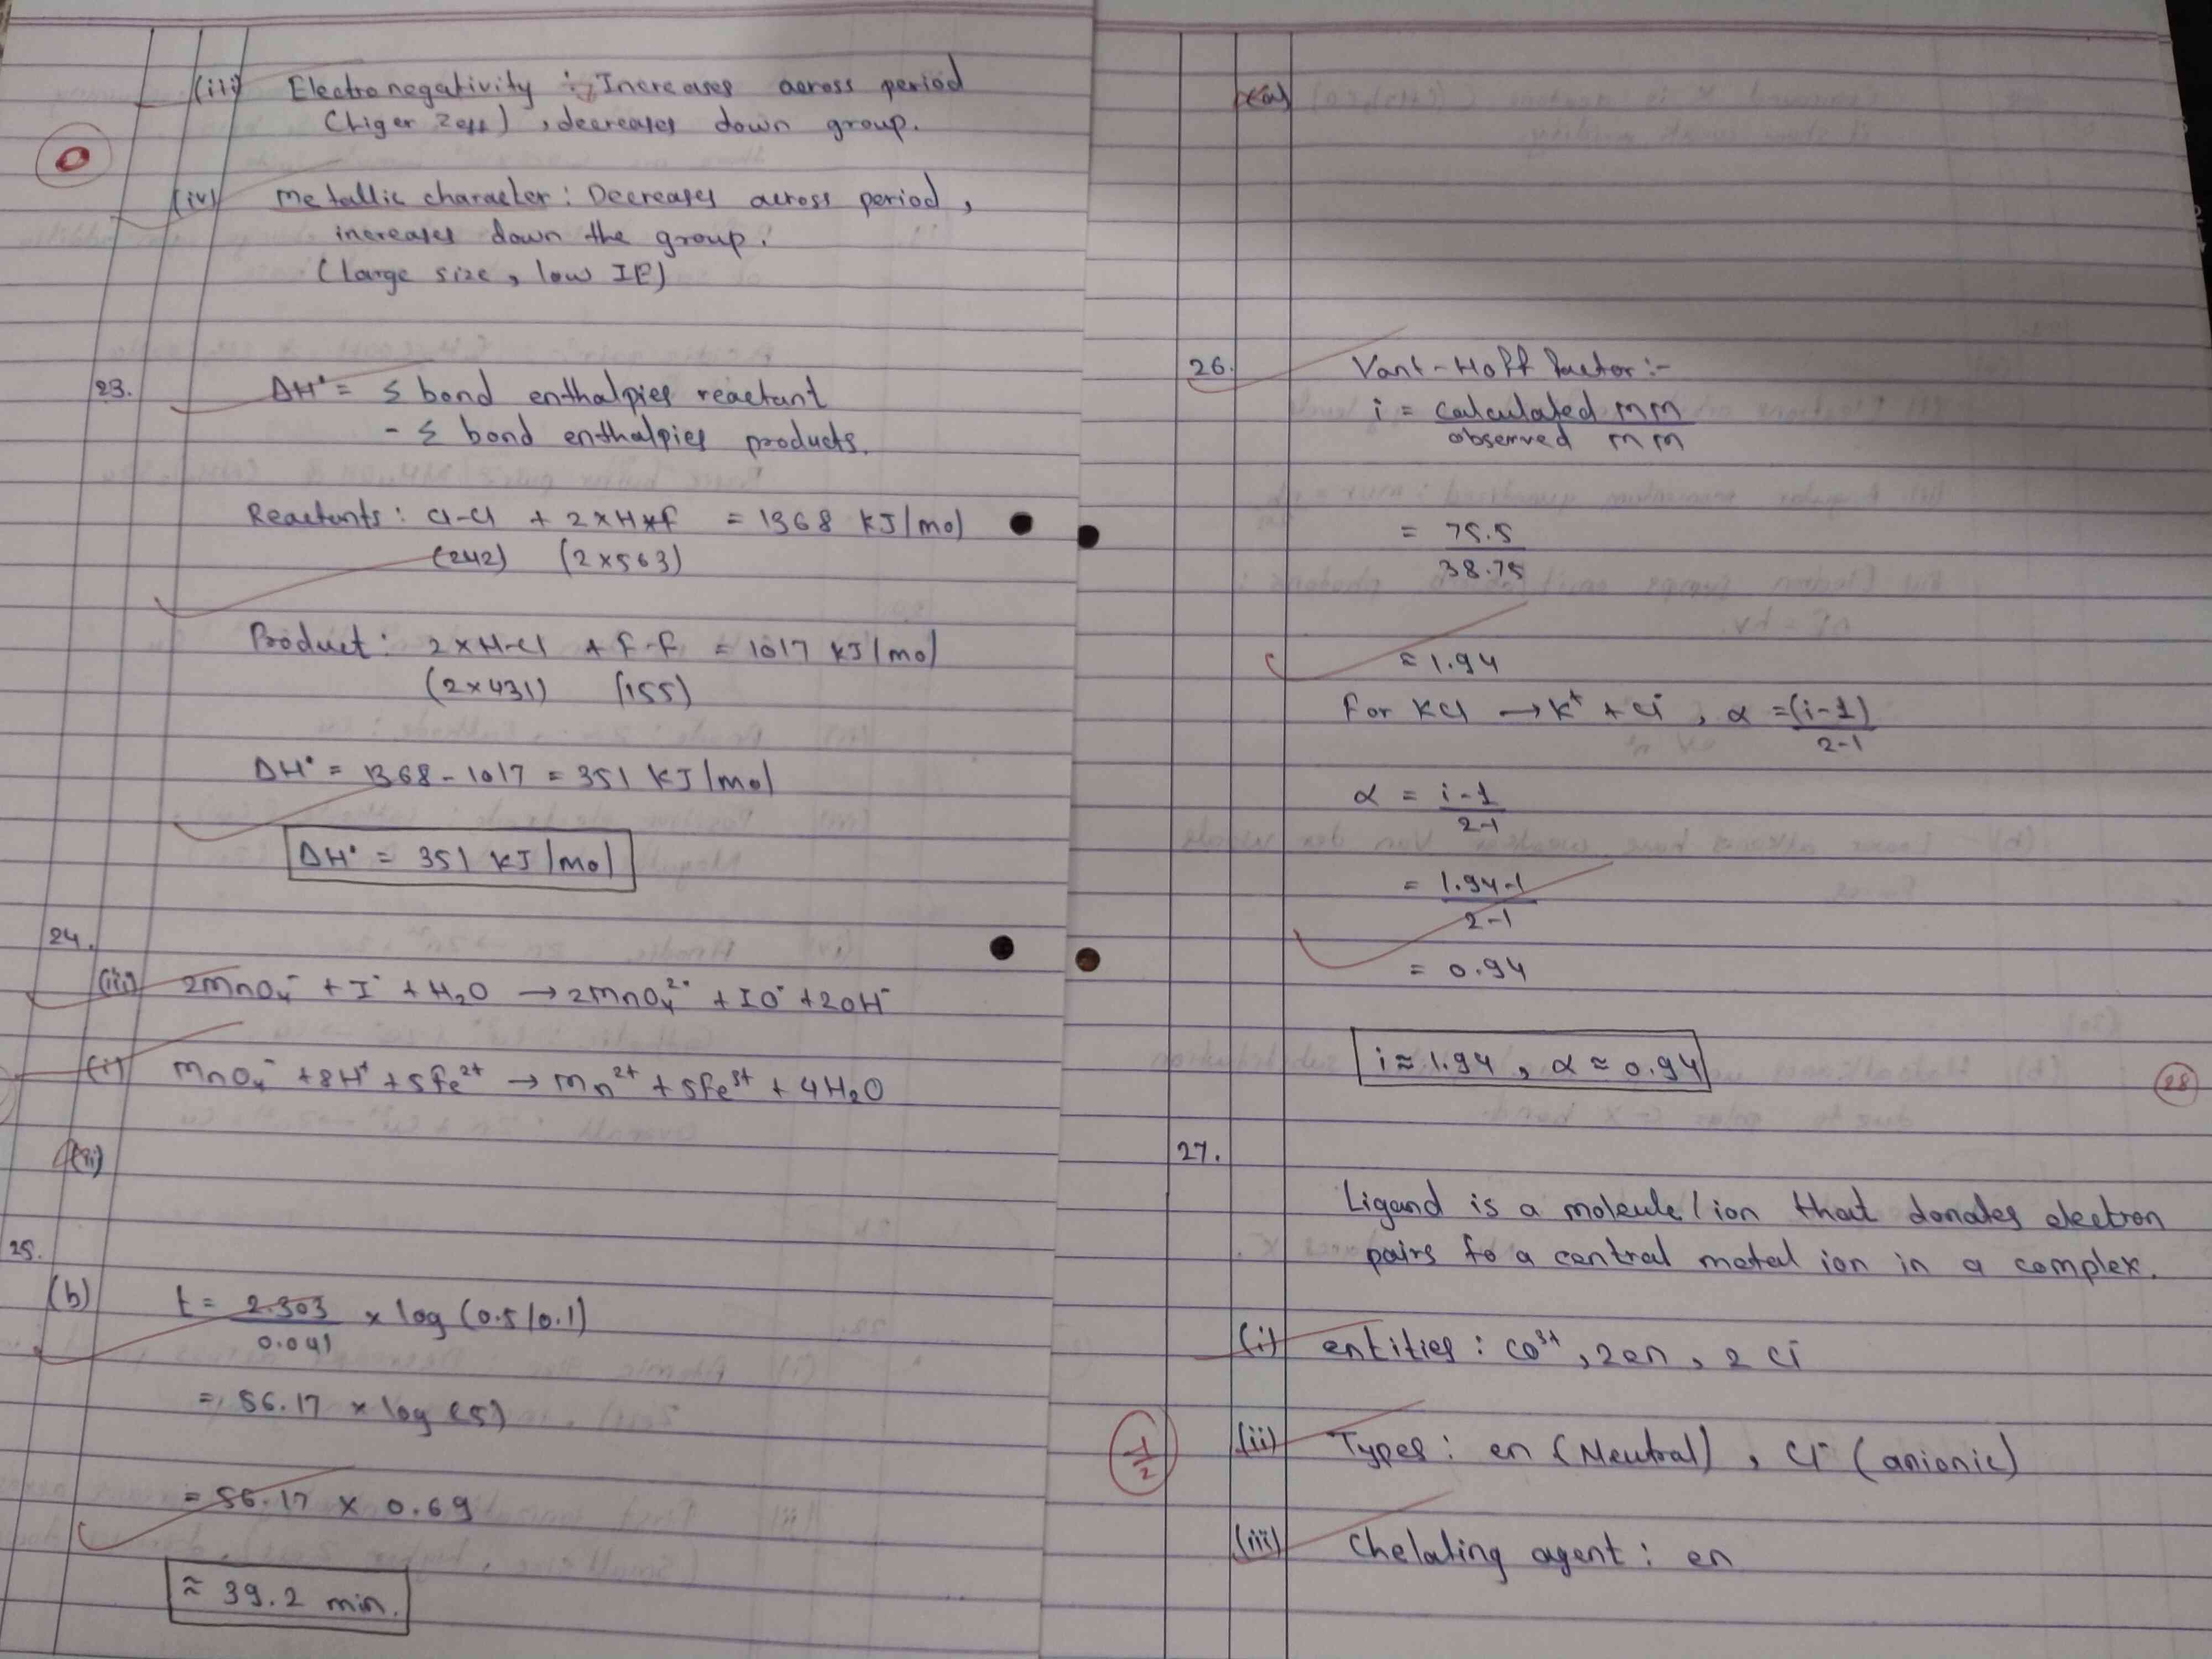 (iii) Electronegativity :- Increases across period
(higer Zeff) , decreases down group.
0
(iv) Metallic character : Decreases across period ,
increases down the group.
(large size, low IE)
23. ΔH° = Σ bond enthalpies reactant
- Σ bond enthalpies products.
Reactants : Cl-Cl + 2×H×F = 1368 KJ/mol
(242) (2×563)
Product : 2×H-Cl + F-F = 1017 KJ/mol
(2×431) (155)
ΔH° = 1368 - 1017 = 351 KJ/mol
ΔH° = 351 KJ/mol
24.
(iii) 2MnO₄⁻ + I⁻ + H₂O → 2MnO₄²⁻ + IO⁻ + 2OH⁻
(i) MnO₄⁻ + 8H⁺ + 5Fe²⁺ → Mn²⁺ + 5Fe³⁺ + 4H₂O
(ii)
25.
(b) t = 2.303/0.041 × log (0.5/0.1)
= 56.17 × log (5)
= 56.17 × 0.69
≈ 39.2 min.
(a)
26. Vant-Hoff factor :-
i = calculated mm
observed mm
= 75.5
38.75
≈ 1.94
For KCl → K⁺ + Cl⁻ , α = (i-1)
2-1
α = i-1
2-1
= 1.94-1
2-1
= 0.94
i ≈ 1.94 , α ≈ 0.94
28
27.
Ligand is a moleule/ion that donates electron
pairs to a central metal ion in a complex.
(i) entities : Co³⁺, 2en, 2 Cl⁻
(ii) Types : en (Neutral) , Cl⁻ (anionic)
(iii) Chelating agent : en